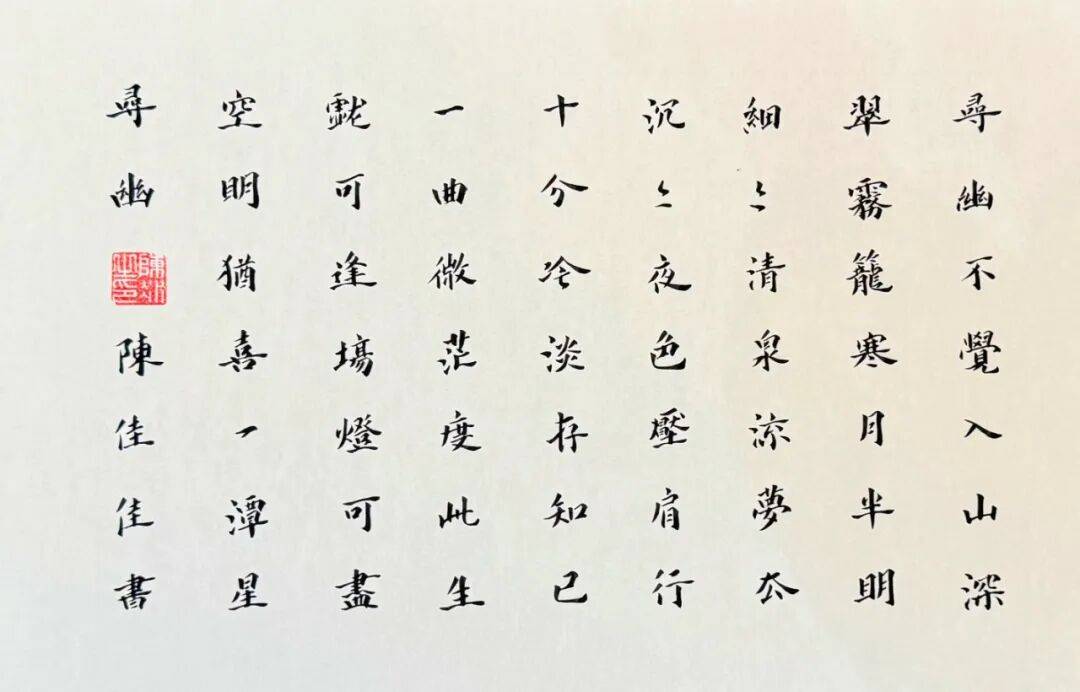 尋幽不覺入山深
翠霧籠寒月半明
細〻清泉流夢厺
沉〻夜色壓肩行
十分冷淡存知己
一曲微茫度此生
戲可逢場燈可盡
空明猶喜一潭星
尋幽
陳佳佳書